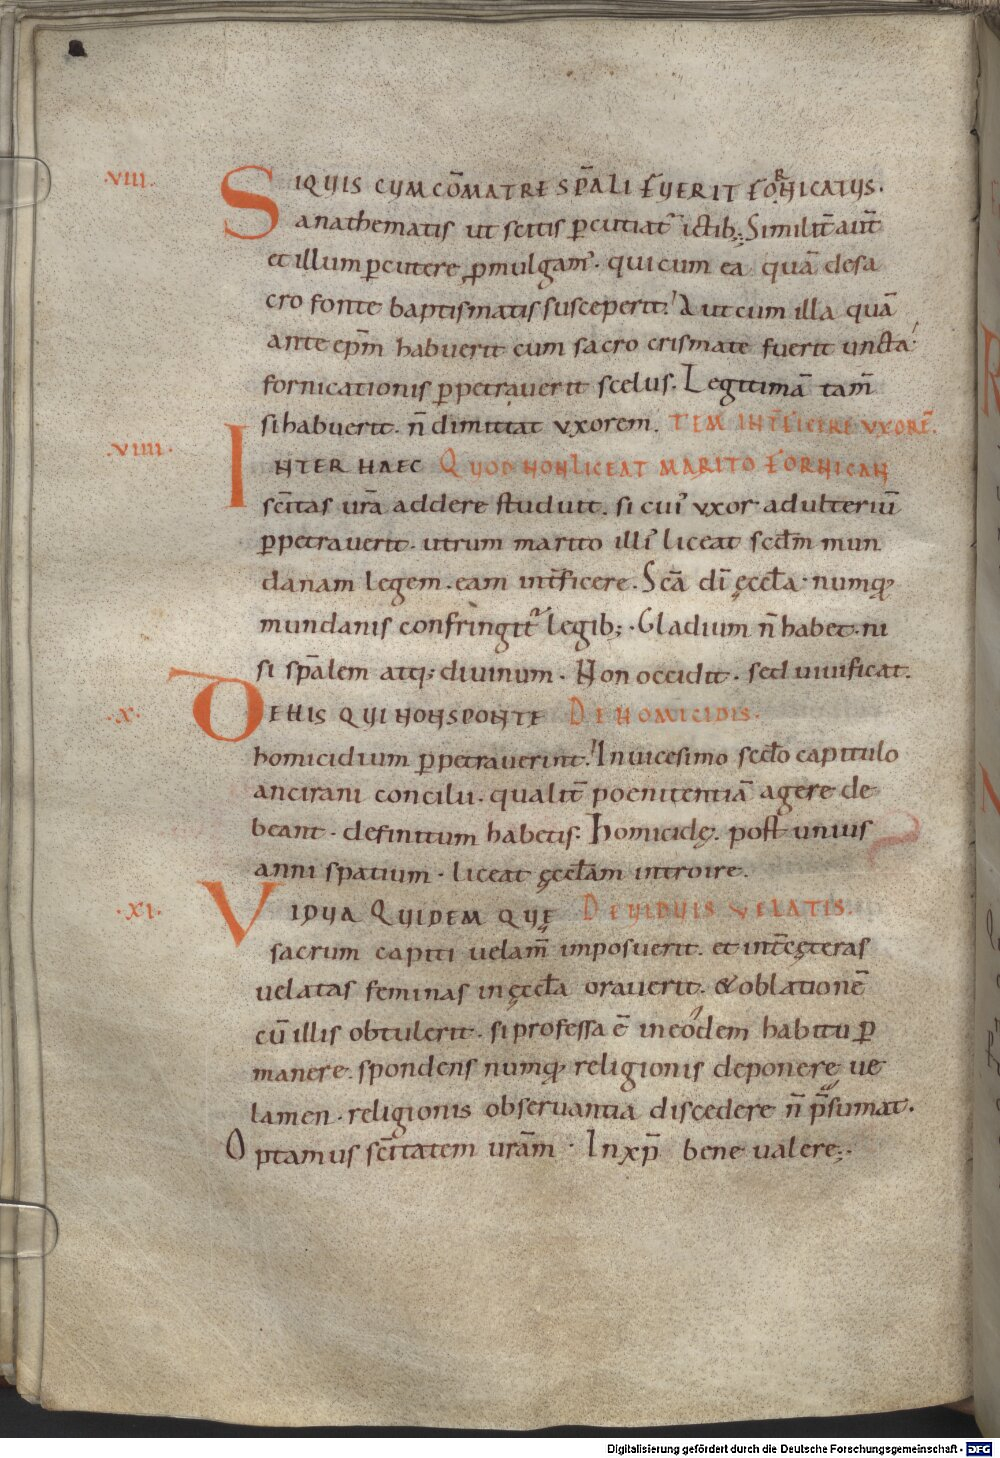 ·VIII· SIQUIS CUM CŌMATRE SP̄ALI FUERIT FORNICATUS.
anathematis ut scitis ꝑcutiat᷑ ictib;. Similit̄ aut̄
et illum ꝑcutere ꝓmulgam᷒. qui cum ea quā de sa
cro fonte baptismatis susceperit. Aut cum illa quā
ante ep̄m habuerit cum sacro crismate fuerit uncta
fornicationis ꝑpetrauerit scelus. Legitimā tam̄
si habuerit. n̄ dimittat uxorem. ITEM INT̄FICERE UXORĒ.
·VIIII· INTER HAEC QUOD NON LICEAT MARITO FORNICAN
sc̄itas ur̄a addere studuit. si cui᷒ uxor adulteriū
ꝑpetrauerit. utrum marito illi᷒ liceat scd̄m mun
danam legem. eam int̄ficere. Sc̄a dī ęccƚa. numq̄
mundanis confringit᷑ legib;. Gladium n̄ habet. ni
si sp̄alem atq; diuinum. Non occidit. sed uiuificat.
·X· DE HIS QUI NON SPONTE DE HOMICIDIS.
homicidium ꝑpetrauerint. In uicesimo scd̄o capitulo
ancirani concilii. qualit̄ poenitentiā agere de
beant. definitum habetis. homicidę. post unius
anni spatium. liceat ęccƚam introire.
·XI· VIDUA QUIDEM QUĘ DE UIDUIS VELATIS.
sacrum capiti uelam̄ imposuerit. et int̄ cęteras
uelatas feminas in ęccƚa orauerit. & oblationē
cū illis obtulerit. si professa ē in eodem habitu ꝑ
manere. spondens numq̄ religionis deponere ue
lamen. religionis obseruantia discedere n̄ p̄sumat.
Optamus sc̄itatem ur̄am. In xp̄o bene ualere;.
Digitalisierung gefördert durch die Deutsche Forschungsgemeinschaft - DFG